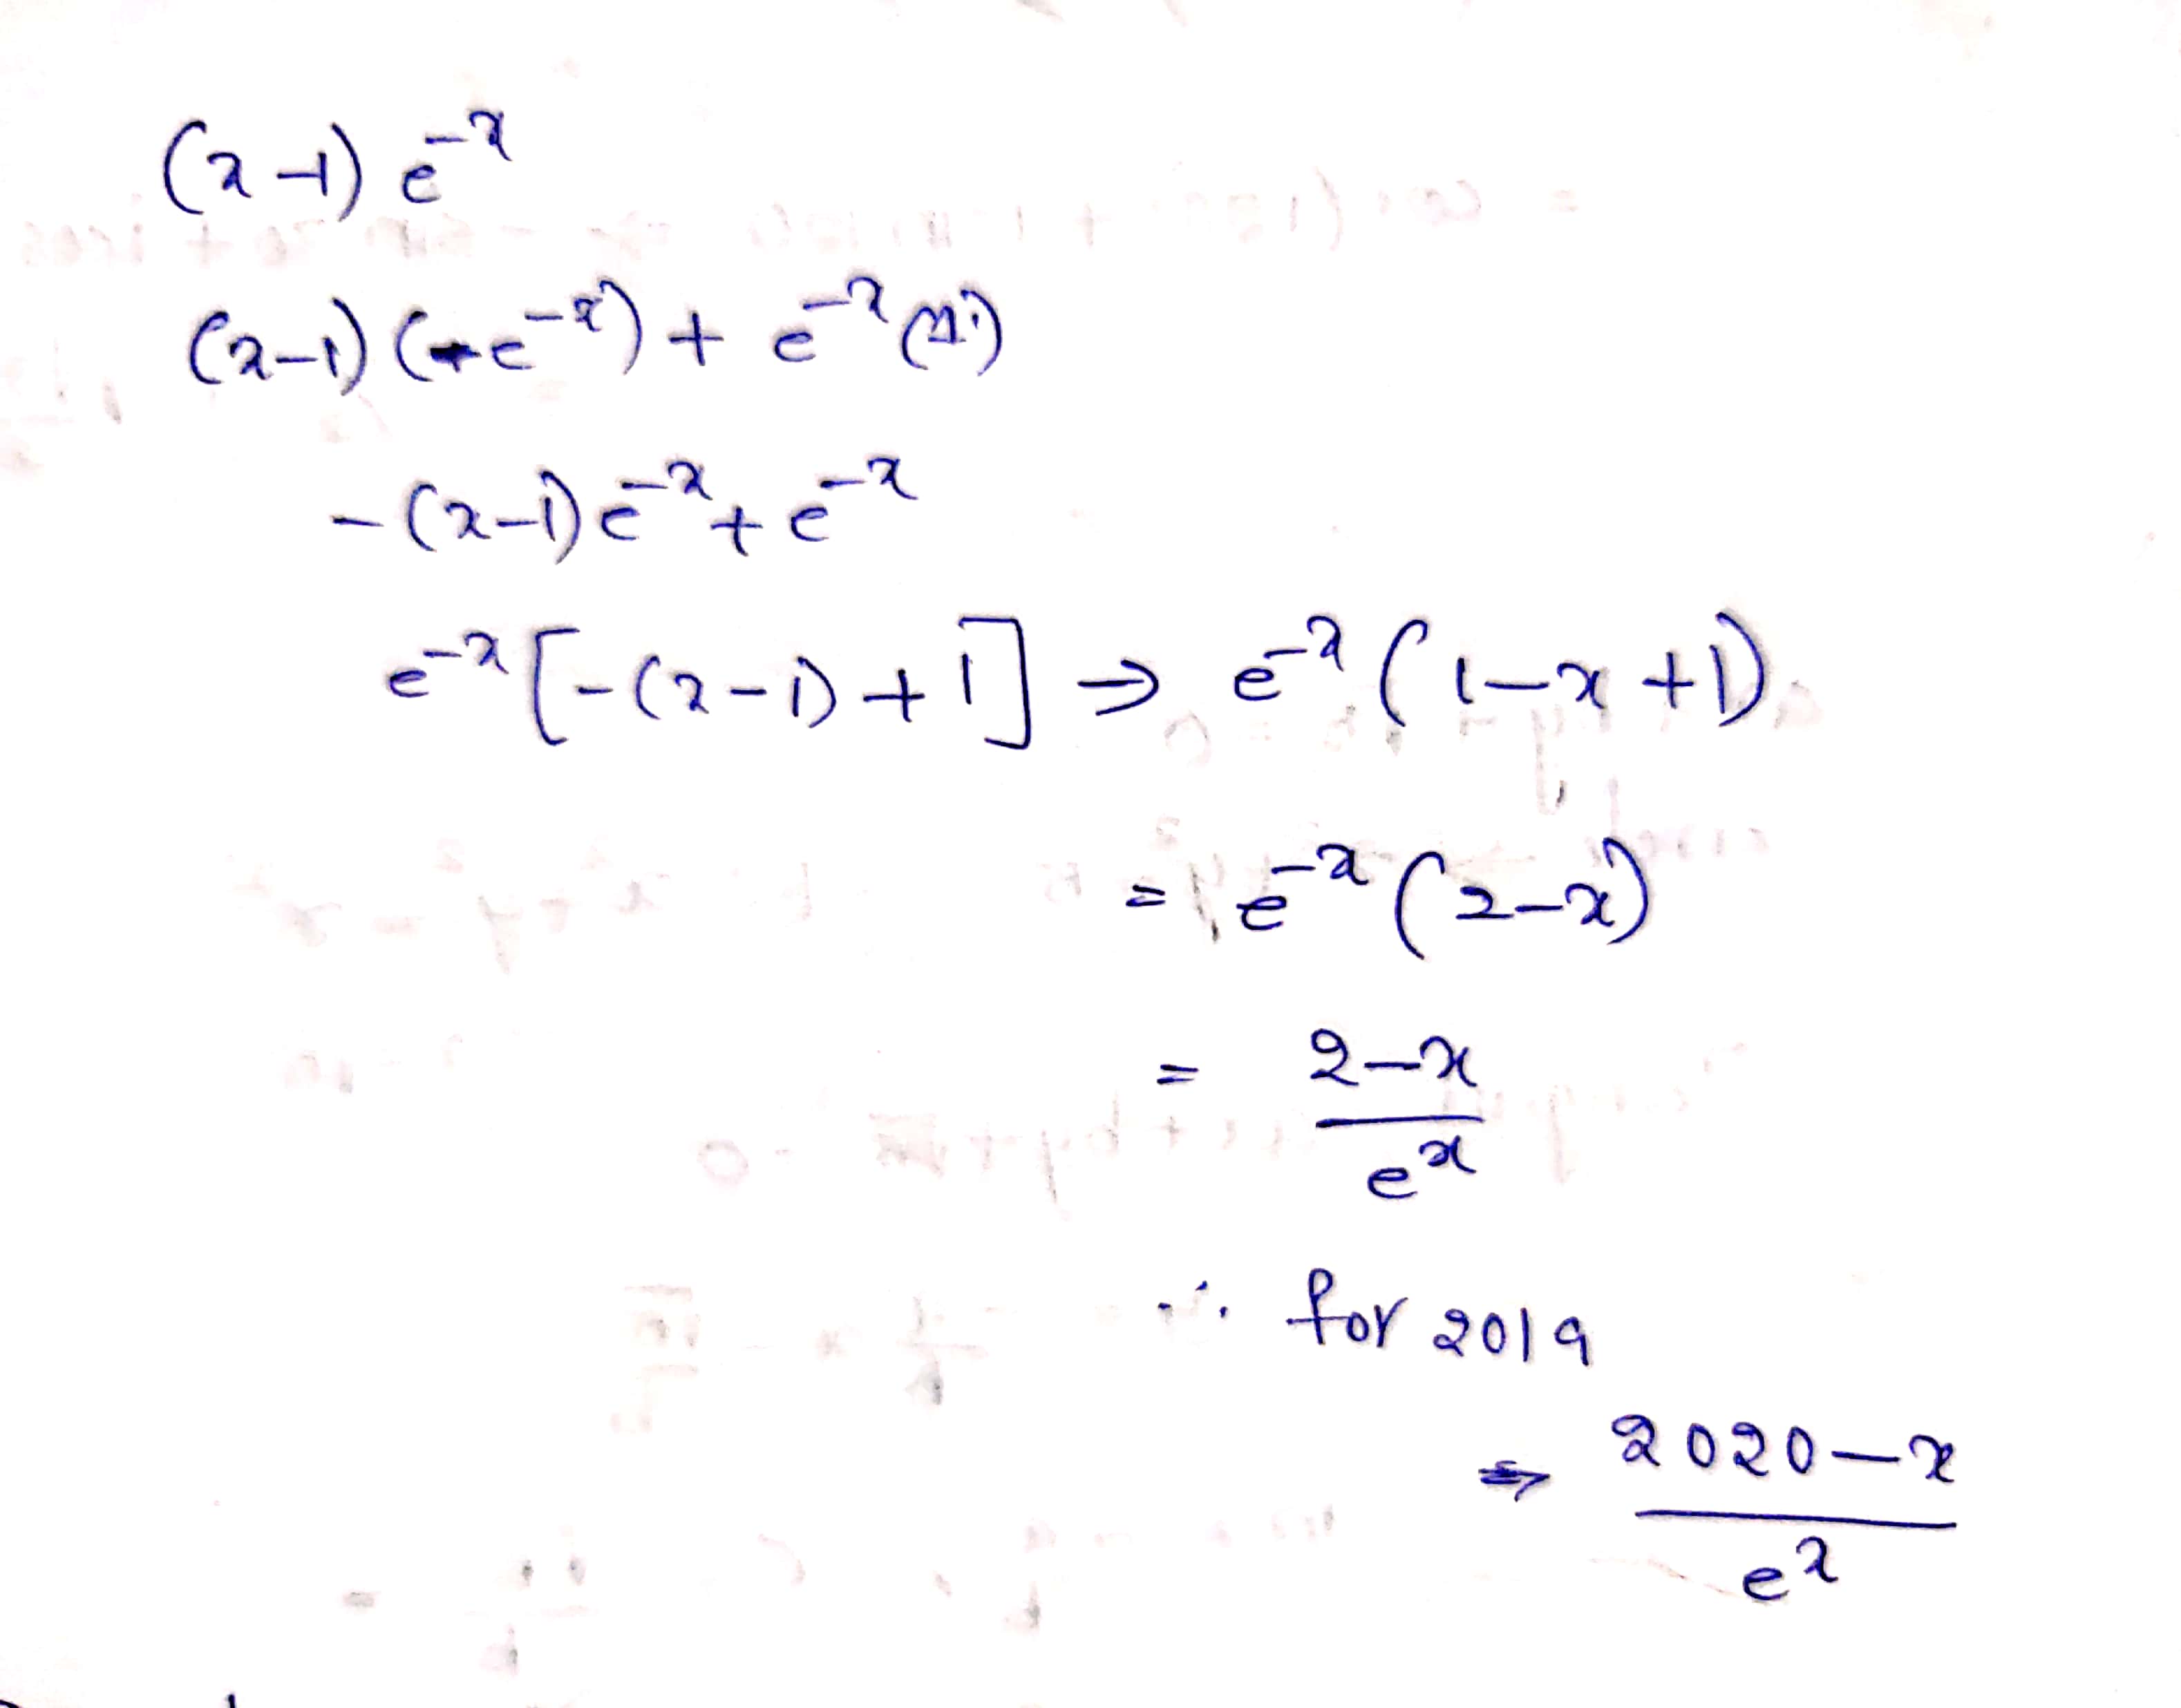 (x-1) e^{-x}
(x-1) (-e^{-x}) + e^{-x} (1)
-(x-1) e^{-x} + e^{-x}
e^{-x} [-(x-1) + 1] → e^{-x} (1-x+1)
= e^{-x} (2-x)
= \frac{2-x}{e^{x}}
∴ for 2019
⇒ \frac{2020-x}{e^{x}}